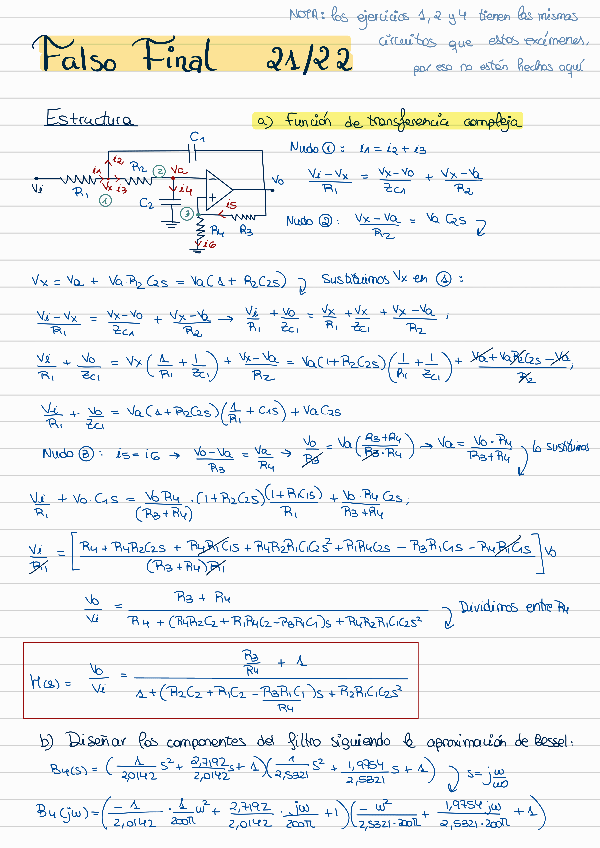 NOTA: los ejercicios 1, 2 y 4 tienen los mismas
circuitos que estos exámenes,
por eso no están hechos aquí
Falso Final 21/22
Estructura
a) Función de transferencia compleja
C1
i2
i1
R2
②
Va
Vi
R1
Vx
i3
①
i4
C2
Vo
③
i5
R4
R3
i6
Nudo ①: i1 = i2 + i3
(Vi-Vx)/R1 = (Vx-Vo)/ZC1 + (Vx-Va)/R2
Nudo ②: (Vx-Va)/R2 = Va C2s
Vx = Va + Va·R2C2s = Va(1 + R2C2s) Sustituimos Vx en ①:
(Vi-Vx)/R1 = (Vx-Vo)/ZC1 + (Vx-Va)/R2 → Vi/R1 + Vo/ZC1 = Vx/R1 + Vx/ZC1 + (Vx-Va)/R2;
Vi/R1 + Vo/ZC1 = Vx(1/R1 + 1/ZC1) + (Vx-Va)/R2 = Va(1+R2C2s)(1/R1 + 1/ZC1) + (Va+VaR2C2s-Va)/R2;
Vi/R1 + Vo/ZC1 = Va(1+R2C2s)(1/R1 + C1s) + VaC2s
Nudo ③: i5 = i6 → (Vo-Va)/R3 = Va/R4 → Vo/R3 = Va((R3+R4)/(R3·R4)) → Va = (Vo·R4)/(R3+R4) lo sustituimos
Vi/R1 + Vo·C1s = (VoR4)/(R3+R4)·(1+R2C2s)(1+R1C1s)/R1 + (Vo·R4C2s)/(R3+R4);
Vi/R1 = [(R4+R4R2C2s + R4R1C1s + R4R2R1C1C2s² + R1R4C2s - R3R1C1s - R4R1C1s)/((R3+R4)R1)]Vo
Vo/Vi = (R3 + R4)/(R4 + (R4R2C2 + R1R4C2 - R3R1C1)s + R4R2R1C1C2s²) Dividimos entre R4
H(s) = Vo/Vi = (R3/R4 + 1)/(1 + (R2C2 + R1C2 - R3R1C1/R4)s + R2R1C1C2s²)
b) Diseñar los componentes del filtro siguiendo la aproximación de Bessel:
B4(s) = (1/2,0142 s² + 2,7192/2,0142 s + 1)(1/2,5321 s² + 1,9754/2,5321 s + 1) s = jω/ω0
B4(jω) = (-1/2,0142 · 1/200π ω² + 2,7192/2,0142 · jω/200π + 1)(-ω²/2,5321·200π + 1,9754jω/2,5321·200π + 1)